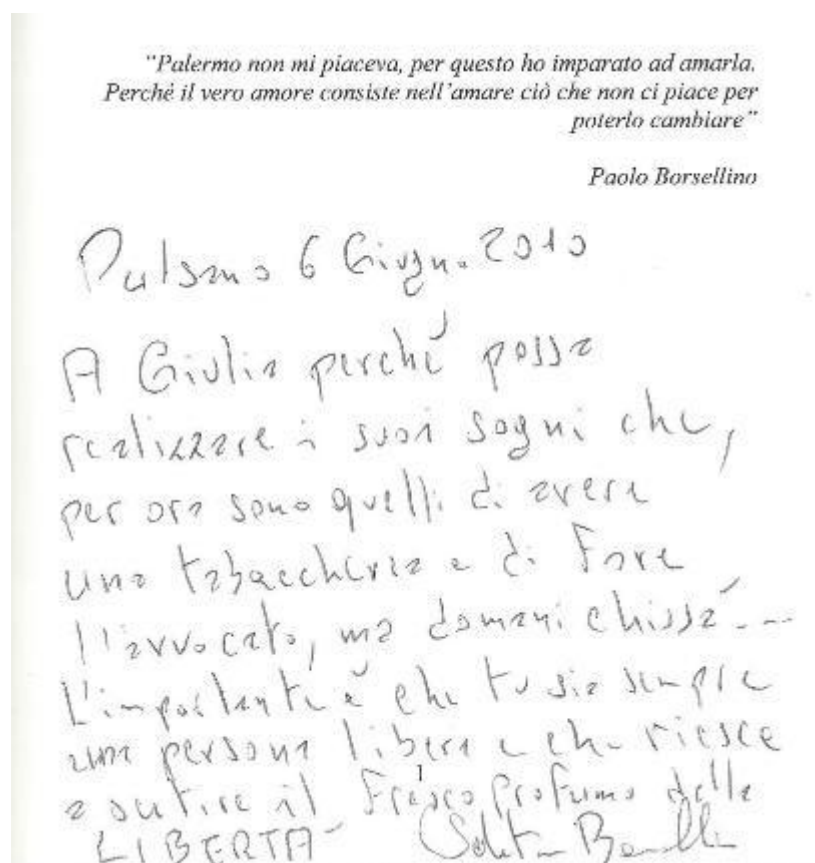 "Palermo non mi piaceva, per questo ho imparato ad amarla.
Perché il vero amore consiste nell'amare ciò che non ci piace per
poterlo cambiare"
Paolo Borsellino
Pulsano 6 Giugno 2010
A Giulia perché possa
realizzare i suoi sogni che,
per ora sono quelli di avere
una tabaccheria e di fare
l'avvocato, ma domani chissà...
L'importante è che tu sia sempre
una persona libera e che riesce
a sentire il fresco profumo della
1
LIBERTA'